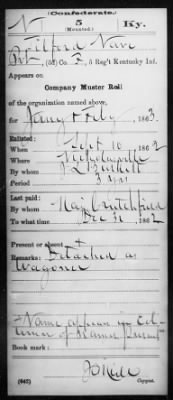 (Confederate.)
N 5 Ky.
(Mounted.)
Tilford Nave
Pvt., (2d) Co. F, 5 Reg't Kentucky Inf.
Appears on
Company Muster Roll
of the organization named above,
for Jany & Feby, 1863.
Enlisted:
When Sept 10, 1862
Where Nicholasville
By whom
Period 3 yrs
Last paid:
By whom Maj. Crutchfield
To what time Dec 31, 1862
Present or absent
Remarks: Detached as
Wagoner
Name appears in Col-
umn of Names present
Book mark:
(642)
Copyist.